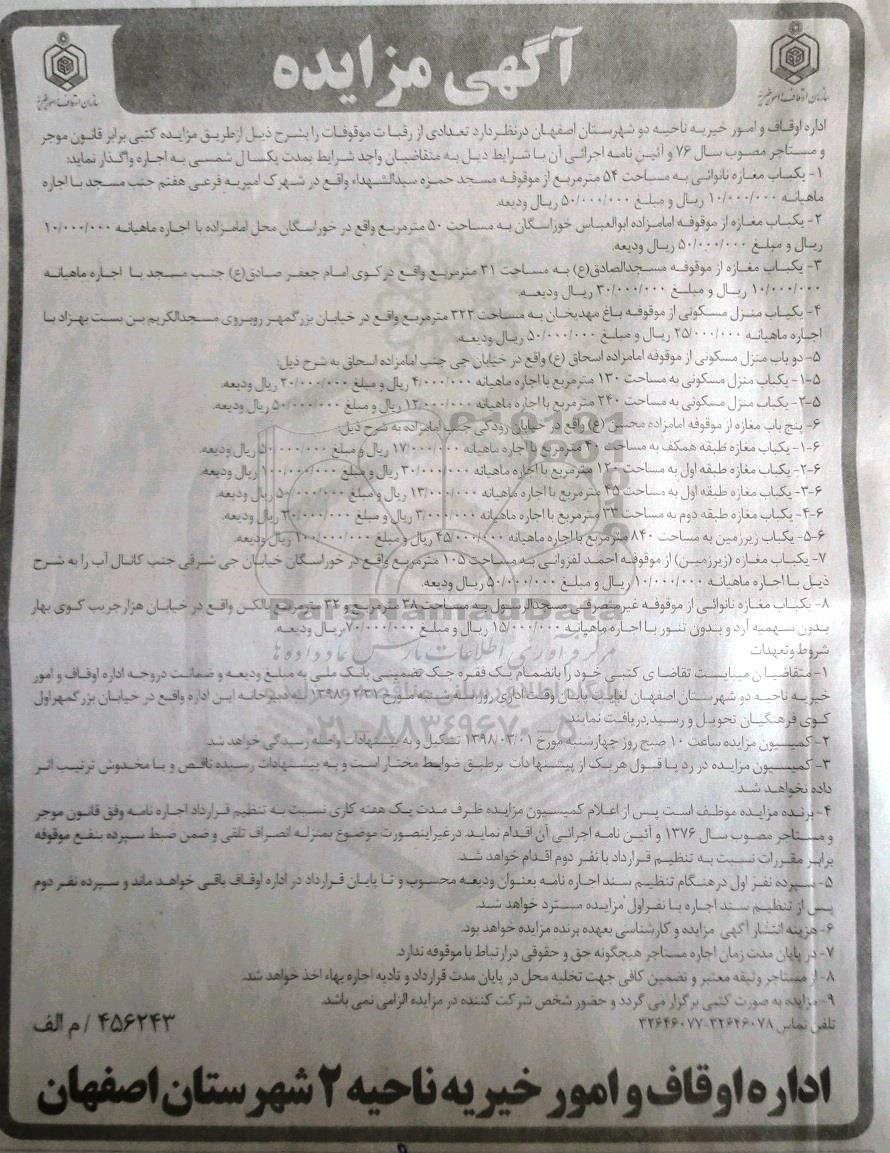 آگهی مزایده
سازمان اوقاف و امور خیریه
سازمان اوقاف و امور خیریه
اداره اوقاف و امور خیریه ناحیه دو شهرستان اصفهان درنظر دارد تعدادی از رقبات موقوفات را بشرح ذیل از طریق مزایده کتبی برابر قانون موجر
و مستاجر مصوب سال ۷۶ و آئین نامه اجرائی آن با شرایط ذیل به متقاضیان واجد شرایط بمدت یکسال شمسی به اجاره واگذار نماید:
۱- یکباب مغازه نانوائی به مساحت ۵۴ مترمربع از موقوفه مسجد حمزه سیدالشهداء واقع در شهرک امیریه فرعی هفتم جنب مسجد با اجاره
ماهیانه ۱۰/۰۰۰/۰۰۰ ریال و مبلغ ۵۰/۰۰۰/۰۰۰ ریال ودیعه.
۲- یکباب مغازه از موقوفه امامزاده ابوالعباس خوراسگان به مساحت ۵۰ مترمربع واقع در خوراسگان محل امامزاده با اجاره ماهیانه ۱۰/۰۰۰/۰۰۰
ریال و مبلغ ۵۰/۰۰۰/۰۰۰ ریال ودیعه.
۳- یکباب مغازه از موقوفه مسجدالصادق(ع) به مساحت ۳۱ مترمربع واقع درکوی امام جعفر صادق(ع) جنب مسجد با اجاره ماهیانه
۱۰/۰۰۰/۰۰۰ ریال و مبلغ ۳۰/۰۰۰/۰۰۰ ریال ودیعه.
۴- یکباب منزل مسکونی از موقوفه باغ مهدیخان به مساحت ۳۲۲ مترمربع واقع در خیابان بزرگمهر روبروی مسجدالکریم بن بست بهزاد با
اجاره ماهیانه ۲۵/۰۰۰/۰۰۰ ریال و مبلغ ۵۰/۰۰۰/۰۰۰ ریال ودیعه.
۵- دو باب منزل مسکونی از موقوفه امامزاده اسحاق (ع) واقع در خیابان جی جنب امامزاده اسحاق به شرح ذیل:
۵-۱- یکباب منزل مسکونی به مساحت ۱۳۰ مترمربع با اجاره ماهیانه ۴/۰۰۰/۰۰۰ ریال و مبلغ ۲۰/۰۰۰/۰۰۰ ریال ودیعه.
۵-۲- یکباب منزل مسکونی به مساحت ۲۴۰ مترمربع با اجاره ماهیانه ۱۲/۰۰۰/۰۰۰ ریال و مبلغ ۵۰/۰۰۰/۰۰۰ ریال ودیعه.
۶- پنج باب مغازه از موقوفه امامزاده محسن (ع) واقع در خیابان رودکی جنب امامزاده به شرح ذیل:
۶-۱- یکباب مغازه طبقه همکف به مساحت ۴۰ مترمربع با اجاره ماهیانه ۱۷/۰۰۰/۰۰۰ ریال و مبلغ ۵۰/۰۰۰/۰۰۰ ریال ودیعه.
۶-۲- یکباب مغازه طبقه اول به مساحت ۱۲۰ مترمربع با اجاره ماهیانه ۳۰/۰۰۰/۰۰۰ ریال و مبلغ ۱۰۰/۰۰۰/۰۰۰ ریال ودیعه.
۶-۳- یکباب مغازه طبقه اول به مساحت ۴۵ مترمربع با اجاره ماهیانه ۱۳/۰۰۰/۰۰۰ ریال و مبلغ ۵۰/۰۰۰/۰۰۰ ریال ودیعه.
۶-۴- یکباب مغازه طبقه دوم به مساحت ۳۳ مترمربع با اجاره ماهیانه ۳/۰۰۰/۰۰۰ ریال و مبلغ ۲۰/۰۰۰/۰۰۰ ریال ودیعه.
۶-۵- یکباب زیرزمین به مساحت ۸۴۰ مترمربع با اجاره ماهیانه ۴۵/۰۰۰/۰۰۰ ریال و مبلغ ۱۰۰/۰۰۰/۰۰۰ ریال ودیعه.
۷- یکباب مغازه (زیرزمین) از موقوفه احمد لفزوانی به مساحت ۱۰۵ مترمربع واقع در خوراسگان خیابان جی شرقی جنب کانال آب را به شرح
ذیل با اجاره ماهیانه ۱۰/۰۰۰/۰۰۰ ریال و مبلغ ۵۰/۰۰۰/۰۰۰ ریال ودیعه.
۸- یکباب مغازه نانوائی از موقوفه غیرمتصرفی مسجدالرسول به مساحت ۳۸ مترمربع و ۳۲ مترمربع بالکن واقع در خیابان هزارجریب کوی بهار
بدون سهمیه آرد و بدون تنور با اجاره ماهیانه ۱۵/۰۰۰/۰۰۰ ریال و مبلغ ۷۰/۰۰۰/۰۰۰ ریال ودیعه.
شروط و تعهدات
۱- متقاضیان میبایست تقاضای کتبی خود را بانضمام یک فقره چک تضمینی بانک ملی به مبلغ ودیعه و ضمانت دروجه اداره اوقاف و امور
خیریه ناحیه دو شهرستان اصفهان لغایت پایان وقت اداری روز سه شنبه مورخ ۱۳۹۸/۰۲/۳۱ به دبیرخانه این اداره واقع در خیابان بزرگمهر اول
کوی فرهنگیان تحویل و رسید دریافت نمایند.
۲- کمیسیون مزایده ساعت ۱۰ صبح روز چهارشنبه مورخ ۱۳۹۸/۰۳/۰۱ تشکیل و به پیشنهادات واصله رسیدگی خواهد شد.
۳- کمیسیون مزایده در رد یا قبول هریک از پیشنهادات برطبق ضوابط مختار است و به پیشنهادات رسیده ناقص و یا مخدوش ترتیب اثر
داده نخواهد شد.
۴- برنده مزایده موظف است پس از اعلام کمیسیون مزایده ظرف مدت یک هفته کاری نسبت به تنظیم قرارداد اجاره نامه وفق قانون موجر
و مستاجر مصوب سال ۱۳۷۶ و آئین نامه اجرائی آن اقدام نماید. در غیر اینصورت موضوع بمنزله انصراف تلقی و ضمن ضبط سپرده بنفع موقوفه
برابر مقررات نسبت به تنظیم قرارداد با نفر دوم اقدام خواهد شد.
۵- سپرده نفر اول درهنگام تنظیم سند اجاره نامه بعنوان ودیعه محسوب و تا پایان قرارداد در اداره اوقاف باقی خواهد ماند و سپرده نفر دوم
پس از تنظیم سند اجاره با نفراول مزایده مسترد خواهد شد.
۶- هزینه انتشار آگهی مزایده و کارشناسی بعهده برنده مزایده خواهد بود.
۷- در پایان مدت زمان اجاره مستاجر هیچگونه حق و حقوقی درارتباط با موقوفه ندارد.
۸- از مستاجر وثیقه معتبر و تضمین کافی جهت تخلیه محل در پایان مدت قرارداد و تادیه اجاره بهاء اخذ خواهد شد.
۹- مزایده به صورت کتبی برگزار می گردد و حضور شخص شرکت کننده در مزایده الزامی نمی باشد.
تلفن تماس ۳۲۶۴۶۰۷۸-۳۲۶۴۶۰۷۷
۴۵۶۲۴۳ / م الف
اداره اوقاف و امور خیریه ناحیه ۲ شهرستان اصفهان
ParsNamadData
مرکز فرآوری اطلاعات پارس نماد داده ها
۰۲۱-۸۸۳۴۹۶۷۰-۵